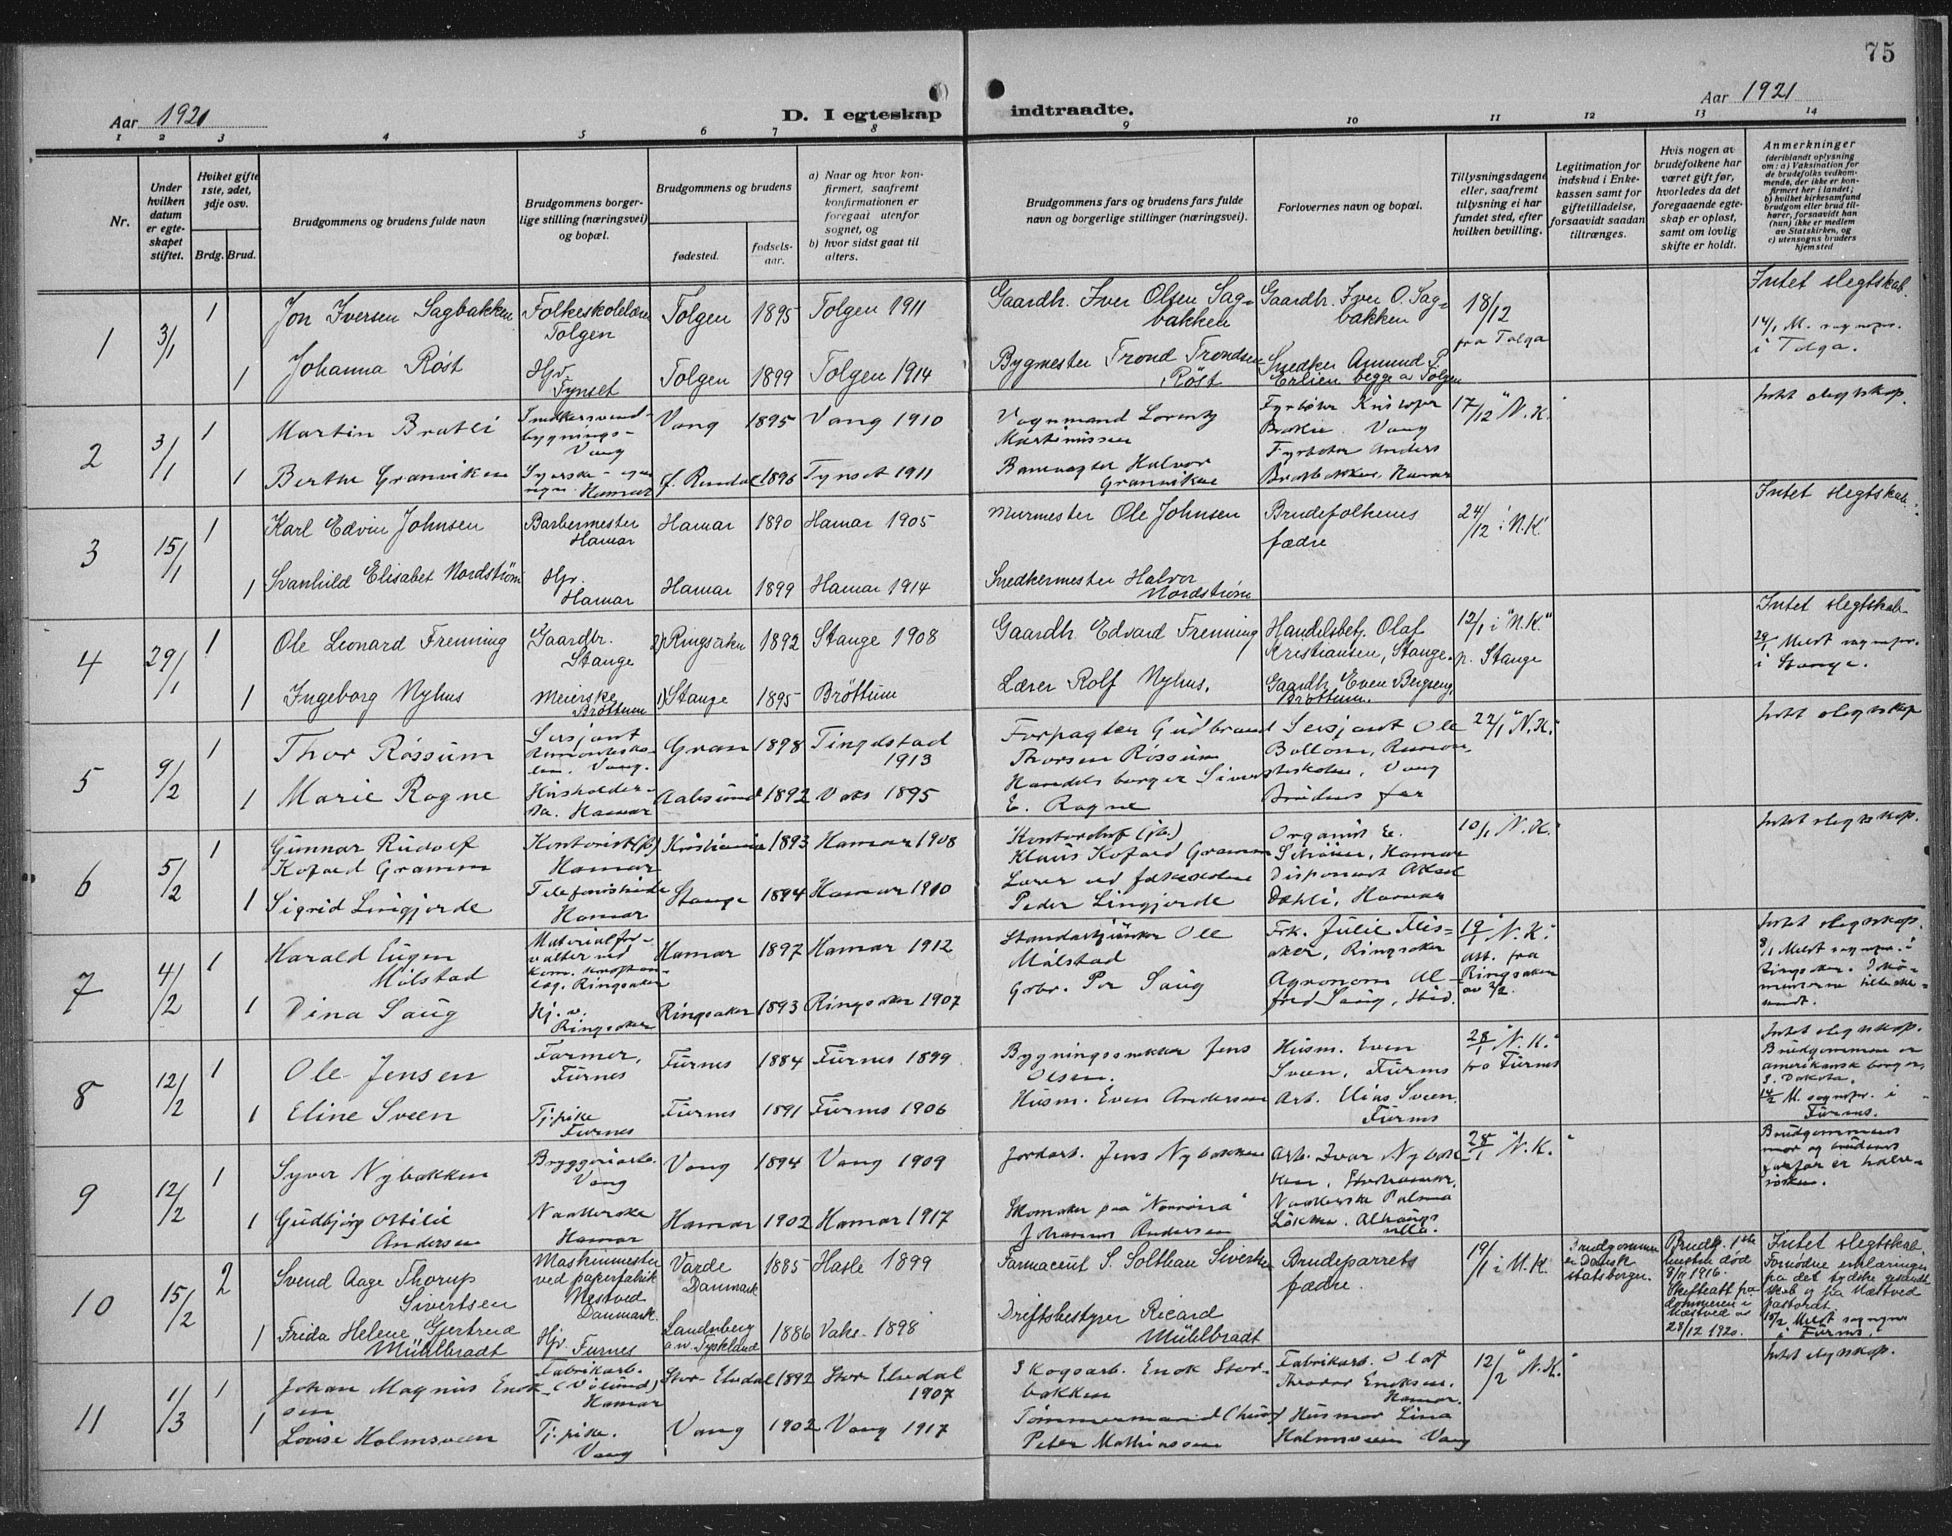 75
Aar 1921
D. I egteskap
indtraadte.
Aar 1921
1 2 3 4 5 6 7 8 9 10 11 12 13 14
Nr.
Under
hvilken
datum
er egte-
skapet
stiftet.
Hviket gifte
1ste, 2det,
3dje osv.
Brdg. Brud.
Brudgommens og brudens fulde navn
Brudgommens borger-
lige stilling (næringsvei)
og bopæl.
Brudgommens og brudens
fødested.
fødsels-
aar.
a) Naar og hvor kon-
firmert, saafremt
konfirmationen er
foregaat utenfor
sognet, og
b) hvor sidst gaat til
alters.
Brudgommens fars og brudens fars fulde
navn og borgerlige stillinger (næringsvei).
Forlovernes navn og bopæl.
Tillysningsdagene
eller, saafremt
tillysning ei har
fundet sted, efter
hvilken bevilling.
Legitimation for
indskud i Enke-
kassen samt for
giftetilladelse,
forsaavidt saadan
tiltrænges.
Hvis nogen av
brudefolkene har
været gift før,
hvorledes da det
foregaaende egte-
skap er opløst,
samt om lovlig
skifte er holdt.
Anmerkninger
(deriblandt oplysning
om: a) Vaksination for
de brudefolks vedkom-
mende, der ikke er kon-
firmert her i landet;
b) hvilket kirkesamfund
brudgom eller brud til-
hører, forsaavidt han
(hun) ikke er medlem
av Statskirken, og
c) utensogns bruders
hjemsted
1 3/1 1 Jon Iversen Sagbakken Folkeskolelærer Tolgen Tolgen 1895 Tolgen 1911 Gaardbr. Iver Olsen Sag-
bakken Gaardbr. Iver O. Sag-
bakken 18/12 fra Tolga Intet slegtskab.
14/1 M. sognepr.
i Tolga.
1 Johanna Røst Hjv. Tynset Tolgen 1899 Tolgen 1914 Bygmester Trond Trondsen
Røst Snedker Amund P.
Erlien begge a Tolgen
2 3/1 1 Martin Bratli Snedkersvend-
bygnings-
Vang Vang 1895 Vang 1910 Vognmand Lorentz
Martinissen Fyrbøter Kristofer
Vang 17/12 "N. K." Intet slegtskap.
1 Berthe Granviken Syerske Hamar f. Rendal 1896 Tynset 1911 Banevagter Halvor
Granviken Fyrbøter Anders
Hamar
3 15/1 1 Karl Edvin Johnsen Barbermester
Hamar Hamar 1890 Hamar 1905 Murmester Ole Johnsen Brudefolkenes
fædre 24/12 i "N.K." Intet slegtskab.
1 Svanhild Elisabet Nordstrøm Hjv.
Hamar Hamar 1899 Hamar 1914 Snedkermester Halvor
Nordstrøm
4 29/1 1 Ole Leonard Frenning Gaardbr.
Stange 2) Ringsaker 1892 Stange 1908 Gaardbr. Edvard Frenning Handelsbetj. Olaf
Kristiansen, Stange. 12/1 i "N.K."
p. Stange Intet slegtskab
29/1 Meldt sognepr.
i Stange.
1 Ingeborg Nyhus Meierske
Brøttum 1) Stange 1895 Brøttum Lærer Rolf Nyhus. Gaardbr. Even Bergseng,
Brøttum.
5 9/2 1 Thor Røssum Sersjant
Vang. Gran 1898 Tingelstad
1913 Forpagter Gudbrand
Thorsen Røssum Sersjant Ole
Vang 22/1 "N.K." Intet slegtskap
1 Marie Ragne Husholder-
ske. Hamar Aalesund 1892 Vaks 1895 Handelsborger Sivert
E. Ragne Brudens far
6 5/2 1 Gunnar Rudolf
Kofoed Gramm Kontorist
Hamar Kristiania 1893 Hamar 1908 Kontorchef
Klaus Kofoed Gramm Organist E.
Hamar 10/1 "N. K." Intet slegtskap.
1 Sigrid Lingjerde Telefonistinde
Hamar Stange 1894 Hamar 1910 Lærer ved folkeskolen
Peder Lingjerde Disponent Aksel
Dahli, Hamar
7 4/2 1 Harald Eugen
Milstad Materialfor-
valter ved
Ringsaker Hamar 1897 Hamar 1912 Ole
Milstad Frk. Julie Flis-
aker, Ringsaker 19/1 "N. K."
Att. fra
Ringsaker
av 3/2. Intet slegtskap.
8/2 Meldt sognepr. i
Ringsaker.
1 Dina Saug Hj. v.
Ringsaker Ringsaker 1893 Ringsaker 1907 Gbr. Per Saug Agronom Al-
fred Saug, ibid.
8 12/2 1 Ole Jensen Farmer,
Furnes Furnes 1884 Furnes 1899 Bygningssnekker Jens
Olsen. Husm. Even
Sveen, Furnes 28/1 "N. K."
fra Furnes Intet slegtskap.
Brudgommen er
amerikansk borger,
S. Dakota.
14/2 M. sognepr. i
Furnes.
1 Eline Sveen Tj.pike
Furnes Furnes 1891 Furnes 1906 Husm. Even Andersen Arb. Sveen
Furnes
9 12/2 1 Syver Nybakken Bryggeriarb.
Vang Vang 1894 Vang 1909 Jordarb. Jens Nybakken Arb. Ivar Nybak-
ken, 28/1 "N. K." Brudgommens
mor og brudens
farfar er halv-
søsken.
1 Gudbjørg Ottilie
Andersen Naatlerske
Hamar Hamar 1902 Hamar 1917 Skomaker paa "Norrøna"
Johannes Andersen Naatlerske Palma
Løkken.
10 15/2 2 Svend Aage Thorup
Sivertsen Maskinmester
ved papirfabrik
Nestved
Danmark. Varde
Danmark 1885 Hasle 1899 Farmaceut S. Solthau Sivertsen Brudeparrets
fædre. 19/1 i N.K. Brudgommen
er Dansk
statsborger. Brudg. 1ste
hustru død
8/11 1916.
Skifteatt fra
dommeren i
Næstved av
28/12 1920. Intet slegtskab.
Fornødne erklæringer
fra det tydske gesandt-
skab og fra Næstved
pastorat
16/2 Meldt sognepr
i Furnes.
1 Frida Helene Gjertrud
Mühlbradt Hjv. Furnes Landsberg
a.w. Tyskland 1886 Vake 1898 Driftsbestyrer Ricard
Mühlbradt
11 1/3 1 Johan Magnus Enok-
sen Fabrikarb.
(Vølund)
Hamar Stor Elvedal 1892 Stor Elvedal
1907 Skogsarb. Enok Stor-
bakken Fabrikarb. Olaf
Theodor Enoksen,
Hamar. 12/2 "N.K." Intet slegtskap.
1 Lovise Holmsveen Tj.pike.
Vang Vang 1902 Vang 1917 Tømmermand
Peter Mathiassen Husmor Lina
Holmsveen Vang